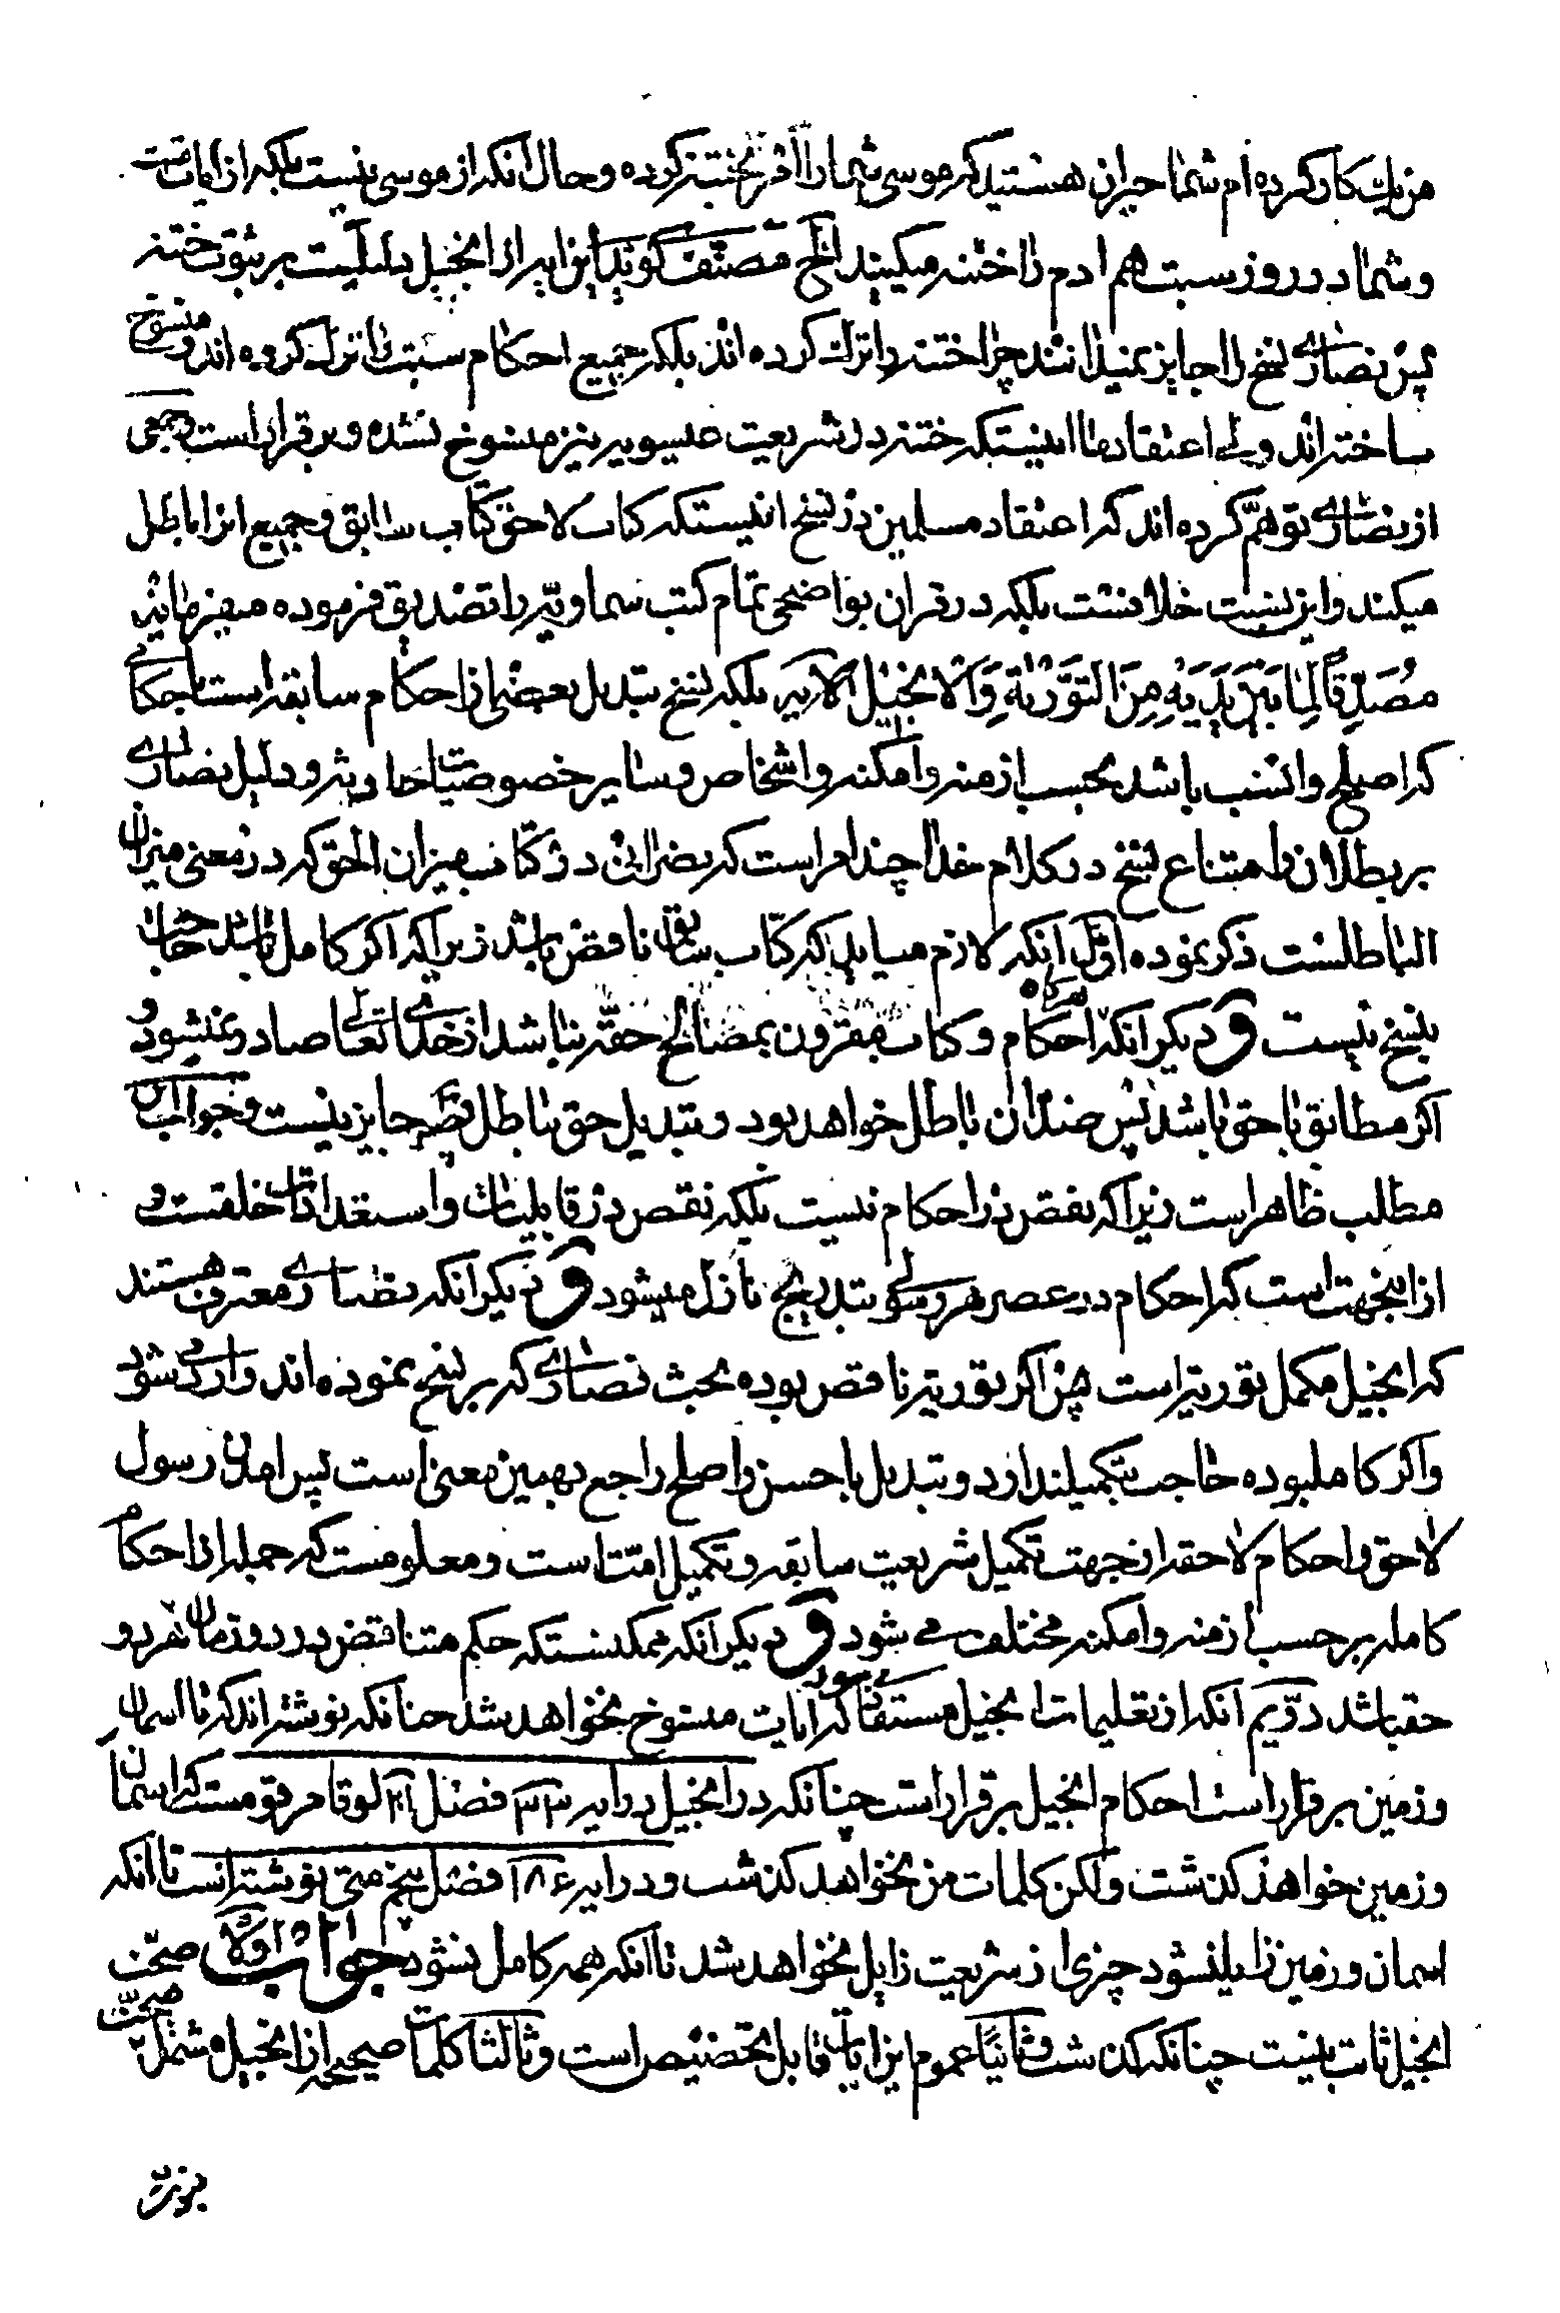 من یك كار كرده ام شما حیران هستید كه موسی شما را امر بختنه كرده و حال آنكه از موسی نیست بلكه از اباست
و شما در روز سبت هم ادم را ختنه میكنید الخ مصنف گوید این ایه از انجیل دلیلیست بر ثبوت ختنه
پس نصاری نسخ را جایز نمیدانند چرا ختنه را ترك كرده اند بلكه جمیع احكام سبت را ترك كرده اند و منسوخ
ساخته اند ولی اعتقاد ما اینستكه ختنه در شریعت عیسویه نیز منسوخ نشده و برقرار است و جمعی
از نصاری توهّم كرده اند كه اعتقاد مسلمین در نسخ اینستكه كتاب لاحق كتاب سابق و جمیع انرا باطل
میكند و این نسبت خلافست بلكه در قران بواضحی تمام كتب سماویّه را تصدیق فرموده میفرماید
مُصَدِّقًا لِمٰا بَیْنَ یَدَیْهِ مِنَ التَّوْرٰیةِ وَالْاِنجیٖل الآیه بلكه نسخ تبدیل بعضی از احكام سابقه است باحكامی
كه اصلح و انسب باشد بحسب ازمنه و امكنه و اشخاص و سایر خصوصیات حادثه و دلیل نصاری
بر بطلان و امتناع نسخ در كلام خدا چند امر است كه نصرانی در كتاب میزان الحق كه در معنی میزان
الباطلست ذكر نموده اوّل انكه لازم میاید كه كتاب سابق ناقص باشد زیرا كه اگر كامل باشد حاجت
بنسخ نیست و دیگر انكه احكام و كتاب مقرون بمصالح حقّه نباشد از خدای تعالی صادر نمیشود و
اگر مطابق با حق باشد پس ضد ان باطل خواهد بود و تبدیل حق بباطل جایز نیست و جواب این
مطلب ظاهر است زیرا كه نقص در احكام نیست بلكه نقص در قابلیات و استعدادات خلقست و
از اینجهت است كه احكام در عصر هر رسولی بتدریج نازل میشود و دیگر انكه نصاری معترف هستند
كه انجیل مكمل توریة است پس اگر توریة ناقص بوده بحث نصاری كه بر نسخ نموده اند وارد می شود
و اگر كاملبوده حاجت بتكمیلندارد و تبدیل باحسن و اصلح راجع بهمین معنی است پس امدن رسول
لاحق و احكام لاحقه از جهت تكمیل شریعت سابقه و تكمیل امّتست و معلومست كه جمله از احكام
كامله بر حسب ازمنه و امكنه مختلف می شود و دیگر انكه ممكنستكه حكم متناقض در دو زمان هر دو
حقباشد دوّیم انكه از تعلیمات انجیل مستفاد كه ایات منسوخ نخواهد شد چنانكه نوشته اند كه تا اسمان
و زمین برقرار است احكام انجیل برقرار است چنانكه در انجیل در ایه ۳۳ فصل ۲۱ لوقا مرقومست كه اسمان
و زمین خواهد گذشت ولكن كلمات من نخواهد گذشت و در ایه ۱۸ فصل پنجم متی نوشته است تا انكه
اسمان و زمین زایلنشود چیزی از شریعت زایل نخواهد شد تا انكه همه كامل نشود جواب اولا صحّت
انجیل ثابت نیست چنانكه گذشت و ثانیاً عموم این ایات قابل تخصیص است و ثالثا كلمات صحیحه از انجیل مشتمل بر